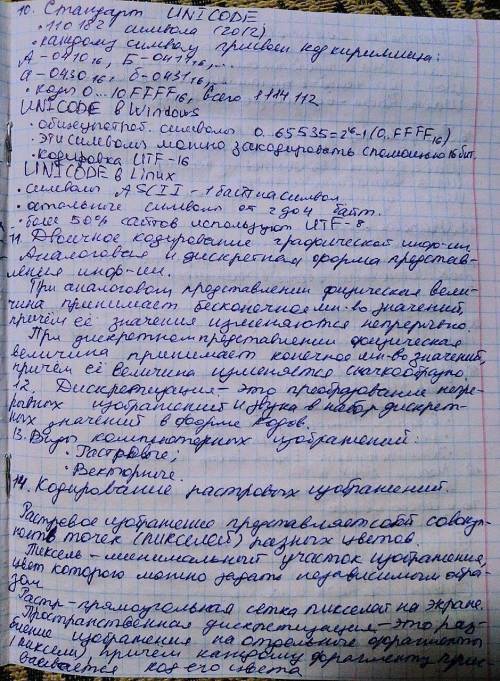 10. Стандарт UNICODE
• 110 182 символа (2012)
• каждому символу присвоен код кириллица:
А - 0410₁₆, Б - 0411₁₆,...
а - 0430₁₆, б - 0431₁₆,...
• коды 0...10FFFF₁₆, всего 1 114 112
UNICODE в Windows
• общеупотреб. символы 0..65535=2¹⁶-1(0..FFFF₁₆)
• эти символы можно закодировать с помощью 16 бит.
• кодировка UTF-16
UNICODE в Linux
• символы ASCII - 1 байт на символ
• остальные символы от 2 до 4 байт.
• более 50% сайтов используют UTF-8.
11. Двоичное кодирование графической инф-ии.
Аналоговая и дискретная форма представ-
ления инф-ии.
При аналоговом представлении физическая вели-
чина принимает бесконечное мн-во значений,
причём её значения изменяются непрерывно.
При дискретном представлении физическая
величина принимает конечное мн-во значений,
причём её величина изменяется скачкообразно.
12. Дискретизация - это преобразование непре-
рывных изображений и звука в набор дискрет-
ных значений в форме кодов.
13. Виды компьютерных изображений:
• Растровые;
• Векторные.
14. Кодирование растровых изображений.
Растровое изображение представляет собой совокуп-
ность точек (пикселей) разных цветов.
Пиксель - минимальный участок изображения,
цвет которого можно задать независимым обра-
зом
Растр - прямоугольная сетка пикселей на экране.
Пространственная дискретизация - это раз-
биение изображения на отдельные фрагменты
(пиксели), причём каждому фрагменту прис-
ваивается код его цвета